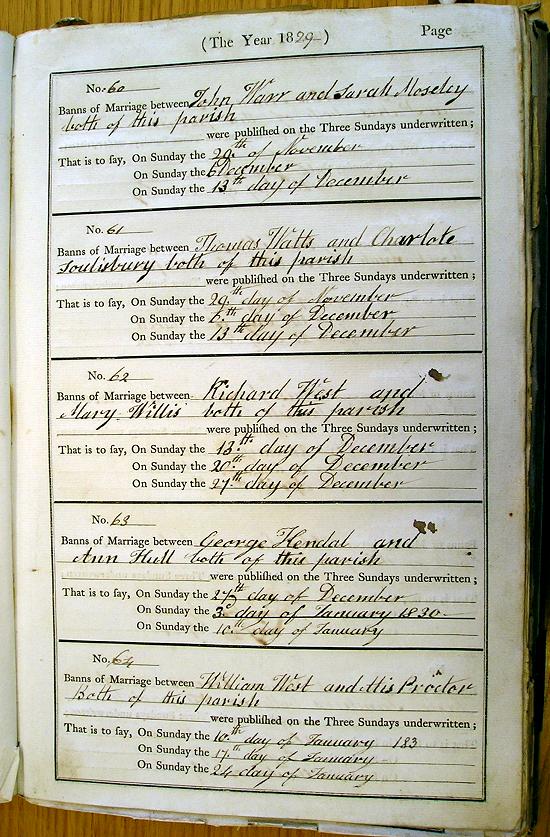 (The Year 1829) Page
No. 60
Banns of Marriage between John Warr and Sarah Moseley
both of this parish
were published on the Three Sundays underwritten;
That is to say, On Sunday the 29th of November
On Sunday the 6 December
On Sunday the 13th day of December
No. 61
Banns of Marriage between Thomas Watts and Charlote
Soulisbury both of this parish
were published on the Three Sundays underwritten;
That is to say, On Sunday the 29th day of November
On Sunday the 6th day of December
On Sunday the 13th day of December
No. 62
Banns of Marriage between Richard West and
Mary Willis both of this parish
were published on the Three Sundays underwritten;
That is to say, On Sunday the 13th day of December
On Sunday the 20th day of December
On Sunday the 27th day of December
No. 63
Banns of Marriage between George Hendal and
Ann Hull both of this parish
were published on the Three Sundays underwritten;
That is to say, On Sunday the 27th day of December
On Sunday the 3d day of January 1830
On Sunday the 10th day of January
No. 64
Banns of Marriage between William West and Proctor
Both of this parish
were published on the Three Sundays underwritten;
That is to say, On Sunday the 10th day of January 183
On Sunday the 17th day of January
On Sunday the 24 day of January